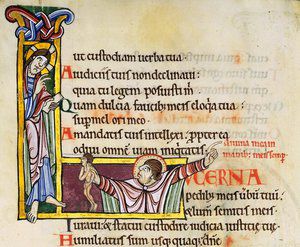 ut custodiam verba tua:
A iudiciis tuis non declinavi:
quia tu legem posuisti m̄.
Quam dulcia faucibus meis eloquia tua:
super mel ori meo.
A mandatis tuis intellexi: ppterea
odivi omnē viam iniquitatis.
Anima mea in
manib; meis semp.
LUCERNA
pedibus meis verbū tuū:
& lumen semitis meis.
Iuravi: & statui custodire iudicia iusticie tue.
Humiliatus sum usq; quaq; dñe: